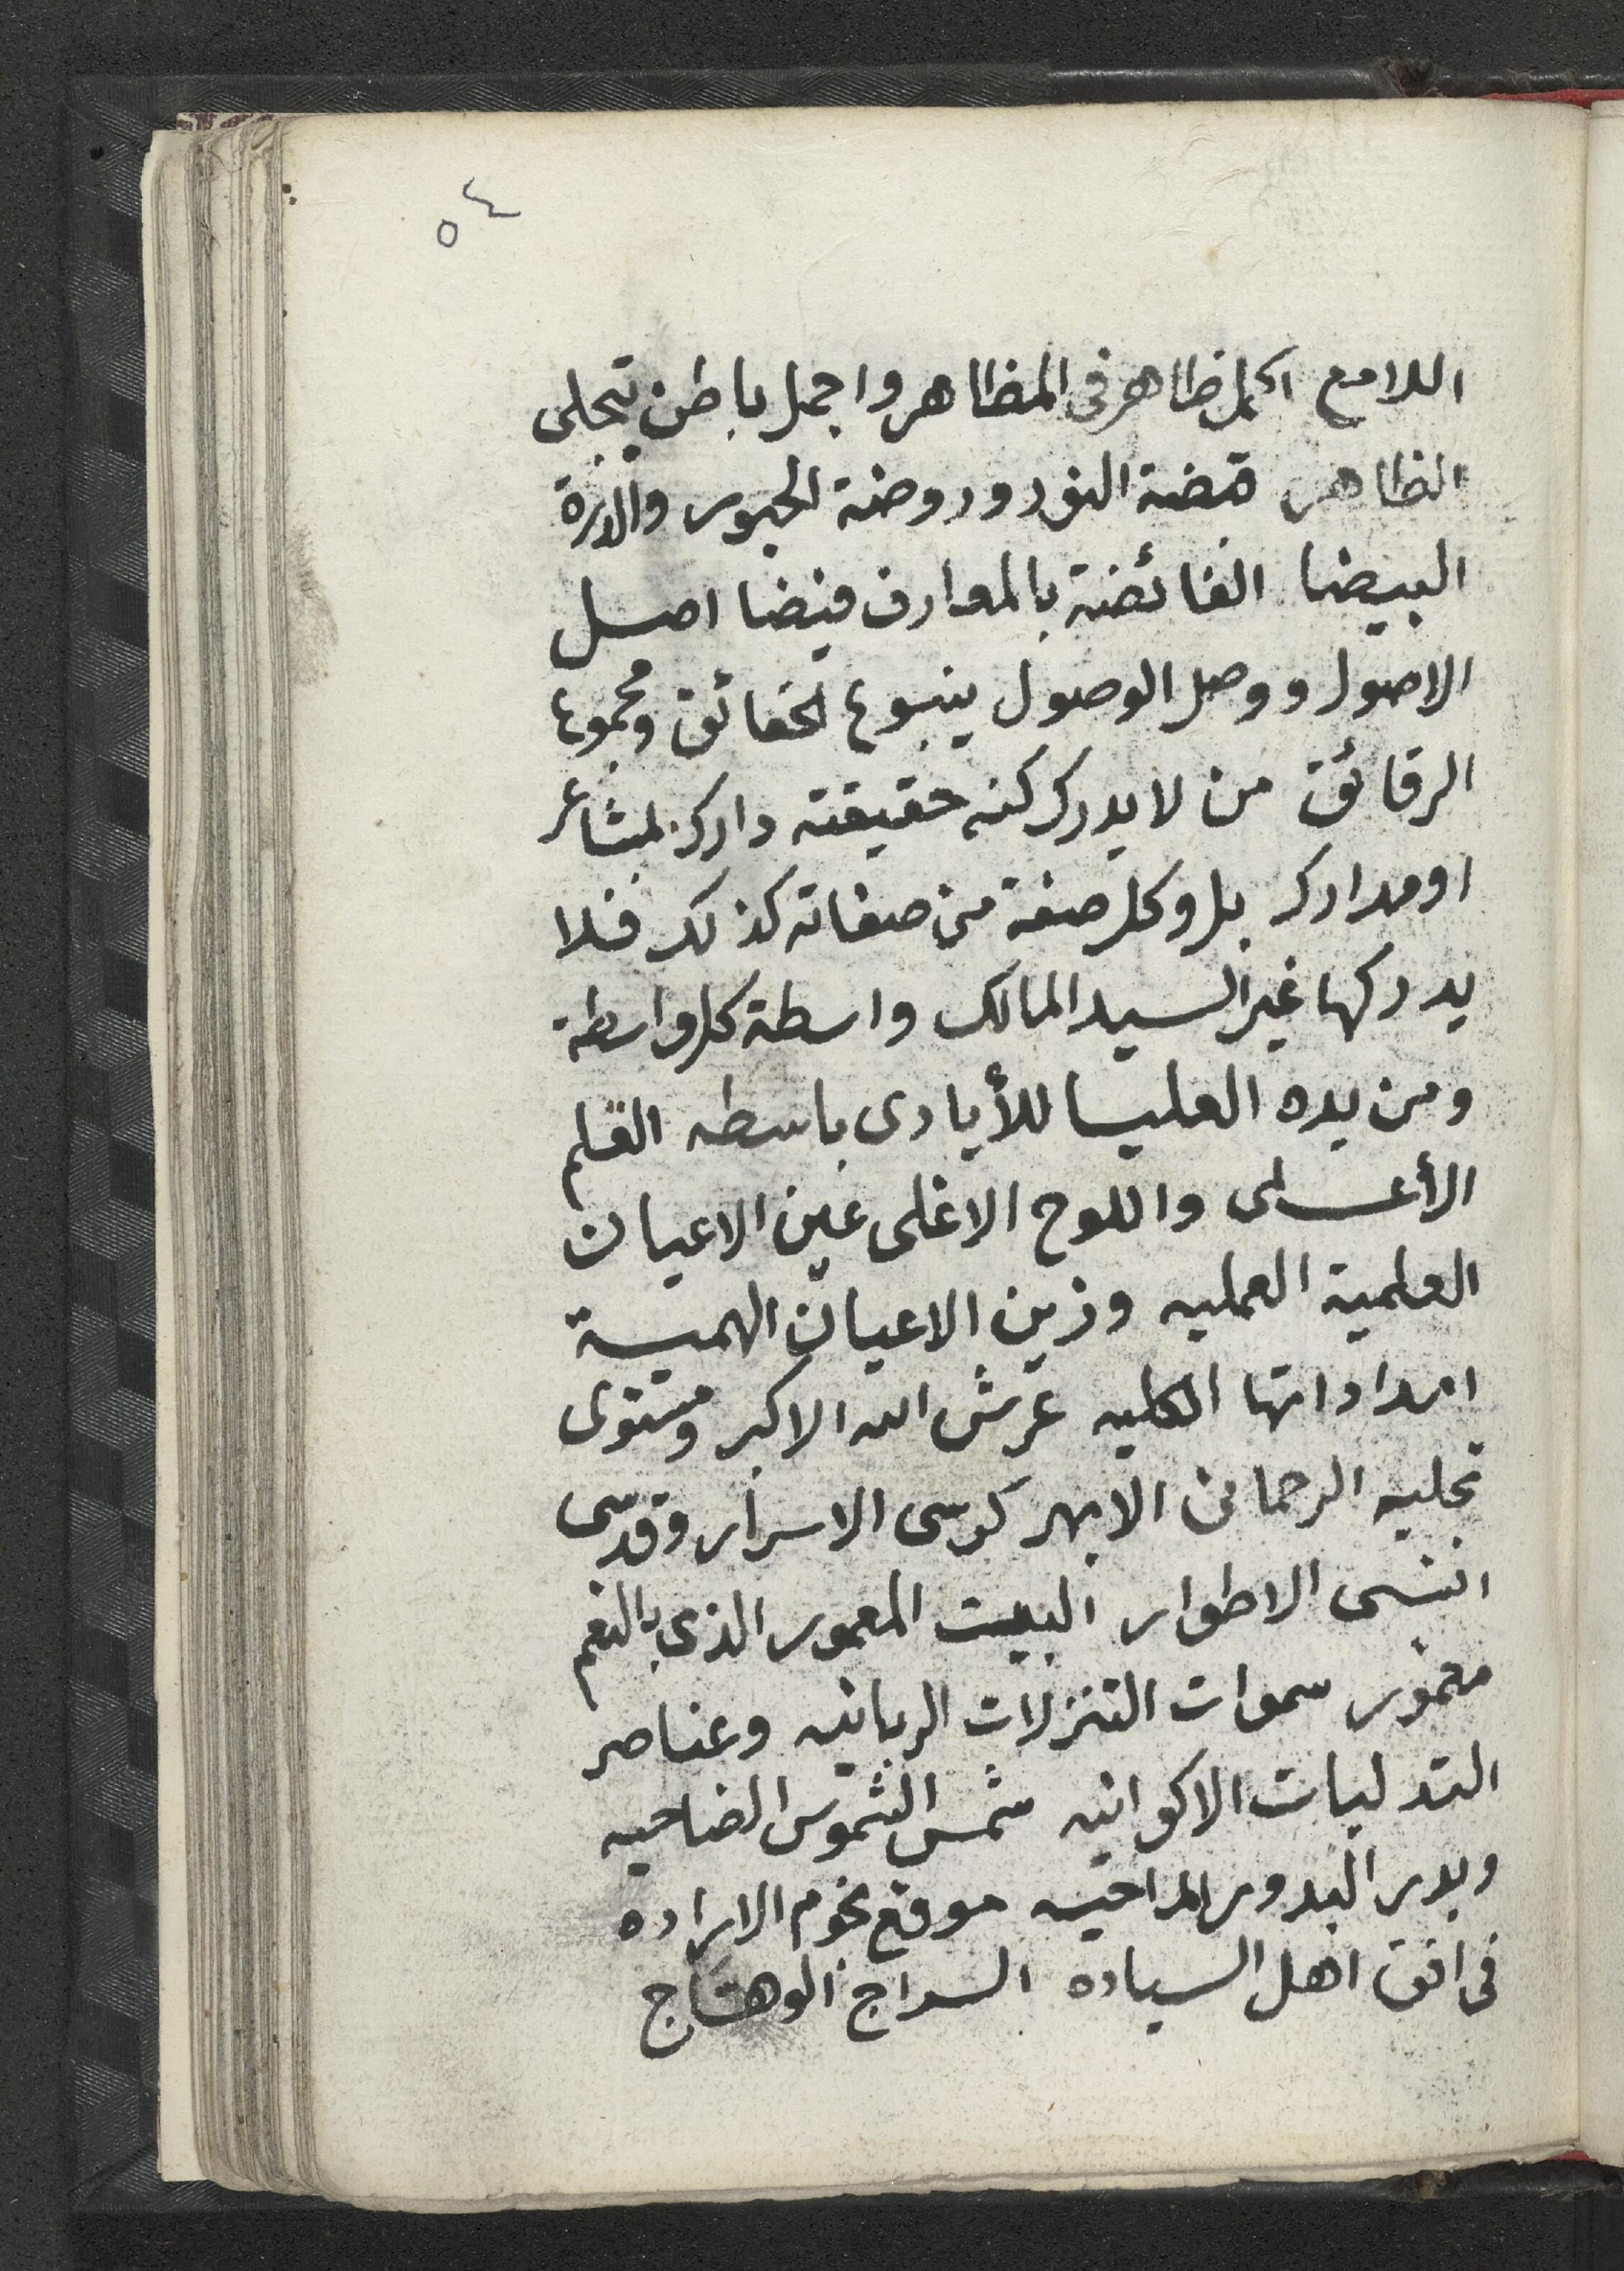 ٥٤
اللامع اكمل ظاهر فى المظاهر واجمل باطن تجلى
الظاهر قبضة النور وروضة الحبور والدرة
البيضا الفائضة بالمعارف فيضا اصل
الاصول ووصل الوصول ينبوع الحقائق ومجموع
الرقائق من لا يدرك كنه حقيقته دارك بمشاعر
او مدارك بل وكل صفة من صفاته كذلك فلا
يدركها غير السيد المالك واسطة كل واسطة
ومن يده العليا للأيادى باسطه القلم
الأعلى واللوح الاغلى عين الاعيان
العلمية العمليه وزين الاعيان الهمية
امداداتها الكليه عرش الله الاكبر ومستوى
تجليه الرحمانى الابهر كرسى الاسرار وقدسى
انسى الاطوار البيت المعمور الذى بالنعم
مغمور سموات التنزلات الربانيه وعناصر
التدليات الاكوانيه شمس الشموس الضاحيه
وبدر البدور الماحيه موقع نجوم الاراده
فى افق اهل السياده السراج الوهاج